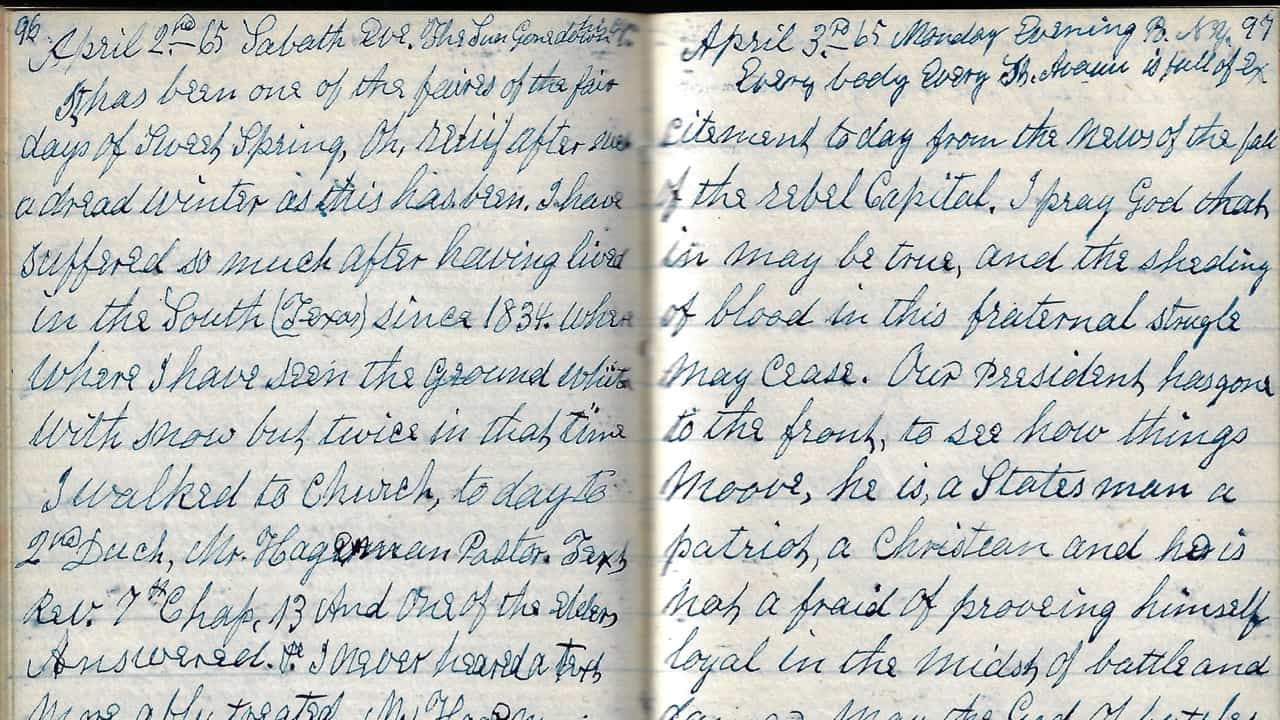 96
April 2nd 65 Sabath Eve. The Sun Gone down
It has been one of the faires of the fair
days of Sweet Spring, Oh, relief after such
a dread winter as this has been. I have
suffered so much after having lived
in the South (Texas) since 1834. where
where I have seen the ground white
with snow but twice in that time
I walked to Church, to day to
2nd Duch, Mr. Hageman Pastor. Text
Rev. 7th Chap, 13 And One of the elders
Answered. &c I never heared a text
more ably treated, Mr
April 3rd 65 Monday Evening B. N.Y. 97
Every body Every is full of Ex
citement to day from the News of the fall
of the rebel Capital. I pray God that
in may be true, and the sheding
of blood in this fraternal strugle
may cease. Our President has gone
to the front, to see how things
moove, he is, a States man a
patriot, a Christean and he is
not a fraid of proveing himself
loyal in the midst of battle and
May the God of battles